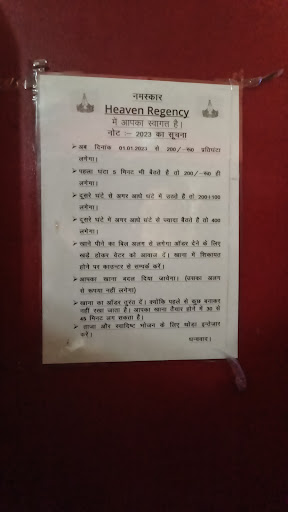 नमस्कार
Heaven Regency
में आपका स्वागत है।
नोट :- 2023 का सूचना
➤ अब दिनांक 01.01.2023 से 200/-रू0 प्रतिघंटा
लगेगा।
➤ पहला घंटा 5 मिनट भी बैठते है तो 200/-रू0 ही
लगेगा।
➤ दूसरे घंटे से अगर आधे घंटे में उठते है तो 200+100
लगेगा।
➤ दूसरे घंटे में अगर आधे घंटे से ज्यादा बैठते है तो 400
लगेगा।
➤ खाने पीने का बिल अलग से लगेगा ऑडर देने के लिए
खड़े होकर वेटर को आवाज दें। खाना में शिकायत
होने पर काउन्टर से सम्पर्क करें।
➤ आपका खाना बदल दिया जायेगा। (उसका अलग
से रूपया नहीं लगेगा)
➤ खाना का ऑडर तुरंत दें। क्योंकि पहले से कुछ बनाकर
नहीं रखा जाता है। आपका खाना तैयार होने में 30 से
45 मिनट लग सकता है।
➤ ताजा और स्वादिष्ट भोजन के लिए थोड़ा इन्तेजार
करें।
धन्यवाद।